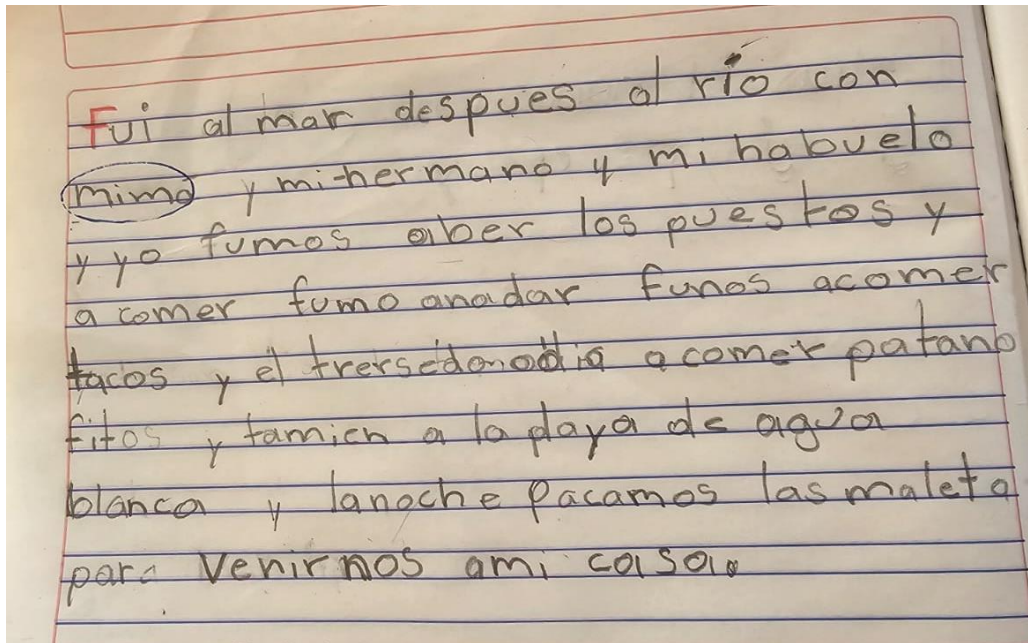 Fui al mar despues al río con
mimo y mi hermano y mi habuelo
y yo fumos aber los puestos y
a comer fumo anadar funos acomer
tacos y el a comer patano
fitos y tamien a la playa de agua
blanca y lanoche Pacamos las maleta
para Venirnos ami casa.